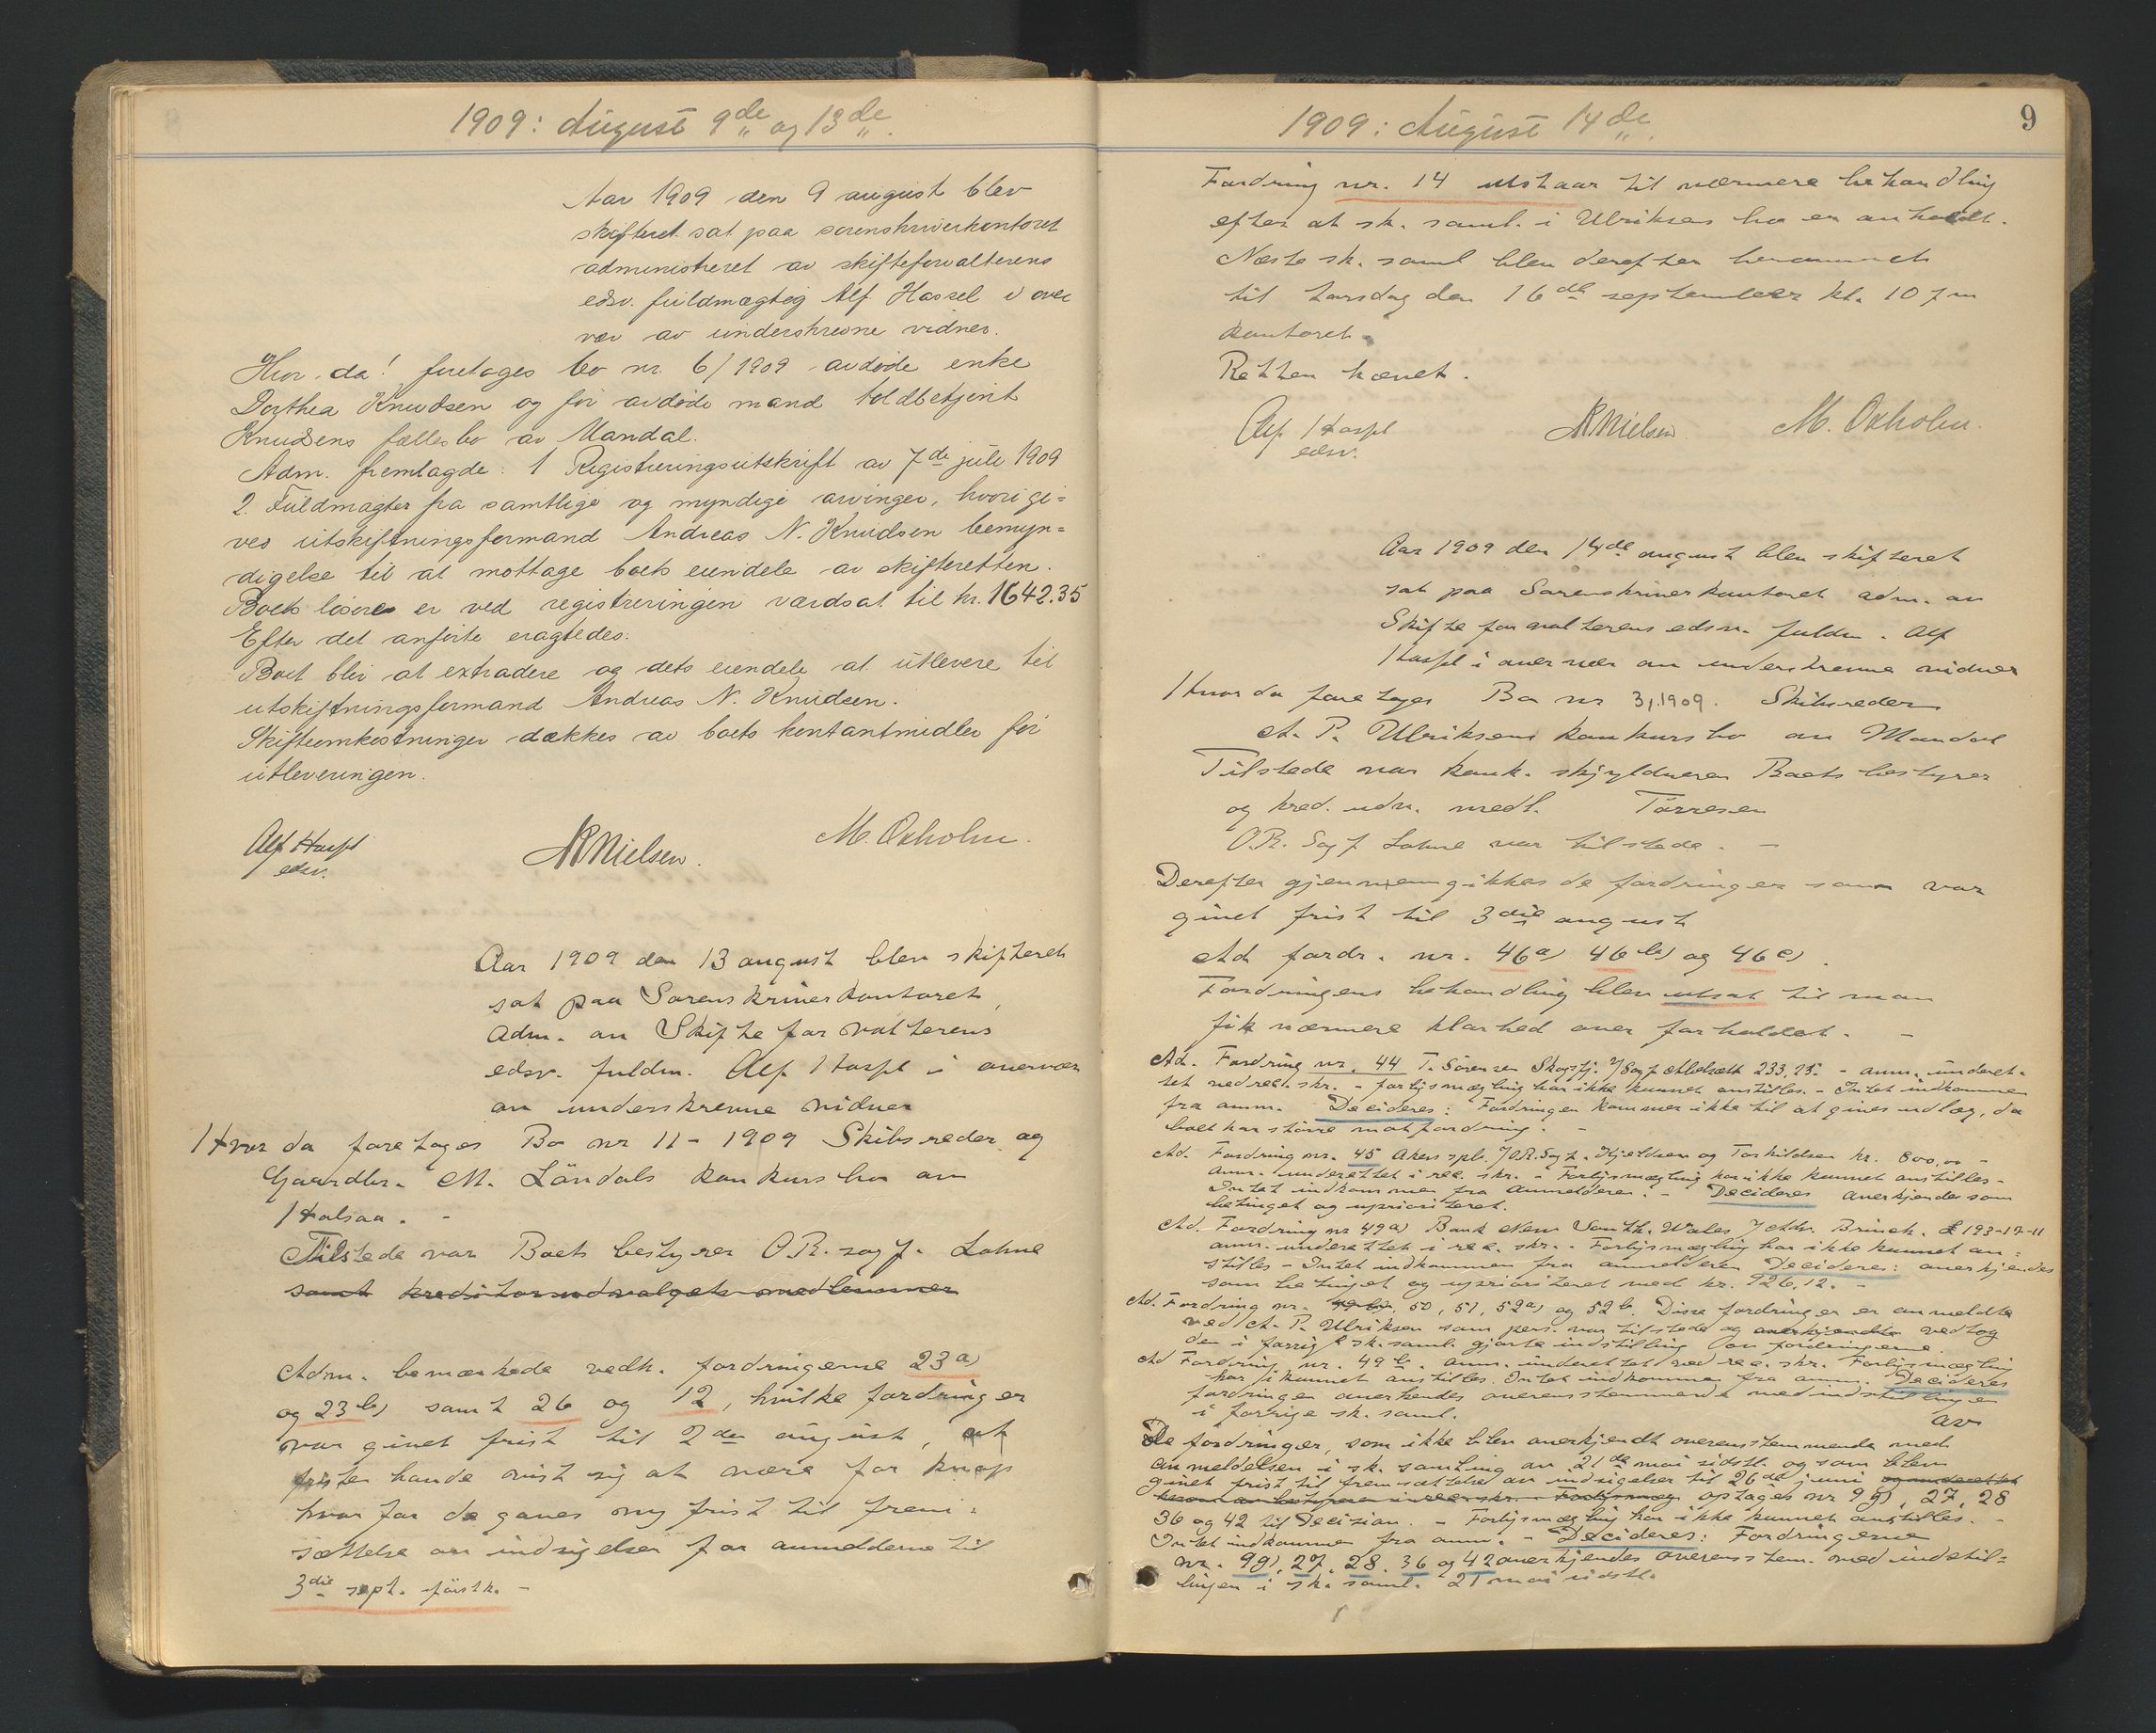 1909: August 9de og 13de.
Aar 1909 den 9 august blev
skifteret sat paa sorenskriverkontoret
administreret av skifteforvalterens
edsv. fuldmægtig Alf Hassel i over
vær av underskrevne vidner.
Hvor da! foretoges bo nr. 6/1909 avdøde enke
Dorthea Knudsen og før avdøde mand toldbetjent
Knudsens fællesbo av Mandal.
Adm. fremlagde: 1 Registreringsutskrift av 7de juli 1909
2. Fuldmagter fra samtlige og myndige arvinger, hvori gi=
ves utskiftningsformand Andreas N. Knudsen bemyn=
digelse til at mottage boets eiendele av skifteretten.
Boets løsøre er ved registreringen værdsat til kr. 1642.35
Efter det anførte eragtedes:
Boet blir at extradere og dets eiendele at utlevere til
utskiftningsformand Andreas N. Knudsen.
Skifteomkostninger dækkes av boets kontantmidler før
utleveringen.
Alf Hassel NNielsen. M. Oxholm.
edsv.
Aar 1909 den 13 august blev skifteret
sat paa Sorenskriverkontoret,
adm. av Skifteforvalterens
edsv. fuldm. Alf Hassel i overvær
av underskrevne vidner
Hvor da foretoges Bo nr 11 - 1909 Skibsreder og
Gaardbr. M. Låndals konkursbo av
Halsaa. -
Tilstede var Boets bestyrer O.R. sagf. Lohne
samt kreditorudvalgets medlemmer
Adm. bemærkede vedk. fordringerne 23a)
og 23b) samt 26 og 12, hvilke fordringer
var givet frist til 2den august, at
fristen havde vist sig at være for knap
hvorfor de gaves ny frist til frem=
sættelse av indsigelser for anmelderne til
3die sept. førstk. -
1909: August 14de. 9
Fordring nr. 14 utstaar til nærmere behandling
efter at sk. saml. i Ulriksens bo er anholdt.
Næste sk. saml blev derefter berammet
til torsdag den 16de september kl. 10 fm
kontoret.
Retten hævet.
Alf Hassel NNielsen M. Oxholm.
edsv.
Aar 1909 den 14de august blev skifteret
sat paa Sorenskriverkontoret adm. av
Skifteforvalterens edsv. fuldm. Alf
Hassel i overvær av underskrevne vidner
Hvor da foretoges Bo nr 3,1909. Skibsreder
A. P. Ulriksens konkursbo av Mandal
Tilstede var konk. skyldneren Boets bestyrer
og kred. udv. medl. Tørresen
O.R. Sagf Lohne var tilstede. -
Derefter gjennemgikkes de fordringer som var
givet frist til 3die august
Ad fordr. nr. 46a) 46b) og 46c).
Fordringens behandling blev utsat til man
fik nærmere klarhed over forholdet. -
Ad. Fordring nr. 44 T. Sørensen Skogsfj. v/Sagf 233,25. - anm. underet-
tet ved rek. skr. - forligsmægling har ikke kunnet anstilles. - Intet indkommen
fra anm. Decideres: Fordringen kommer ikke til at gives udlæg, da
boet har større motfordring. -
Ad. Fordring nr. 45 Akers spb. v/O.R.Sagf. Kjeldsen og Torkildsen kr. 800,00 -
anm. underettet i rek. skr. - Forligsmægling har ikke kunnet anstilles -
Intet indkommen fra anmelderen. - Decideres anerkjendes som
betinget og uprioriteret.
Ad. Fordring nr 49a) Bank New South. Wales v/ Adv. Brinch. £ 193-17-11
anm. underettet i rek. skr. - Forligsmægling har ikke kunnet an=
stilles - Intet indkommen fra anmelderen Decideres: anerkjendes
som betinget og uprioriteret med kr. 926.12. -
Ad. Fordring nr. 50, 51, 52a) og 52b. Disse fordringer er anmeldte
ved A. P. Ulriksen som pers. var tilstede og anerkjendte vedtog
den i forrige sk. saml. gjorte indstilling om fordringerne
Ad Fordring nr. 49b. anm. underettet ved rek. skr. Forligsmægling
har i kunnet anstilles. Intet indkommen fra anm. Decideres
fordringen anerkendes overensstemmende med indstillingen
i forrige sk. saml.
av
De fordringer, som ikke blev anerkjendt overensstemmende med
anmeldelsen i sk. samling av 21de mai sidstl. og som blev
givet frist til fremsættelse av indsigelser til 26de juni og underettet
optages nr 9g), 27, 28
36 og 42 til Decision. - Forligsmægling har ikke kunnet anstilles. -
Intet indkommen fra anm. - Decideres: Fordringerne
nr. 9g), 27, 28. 36 og 42 anerkjendes overensstem. med indstil=
lingen i sk. saml. 21 mai sidstl.